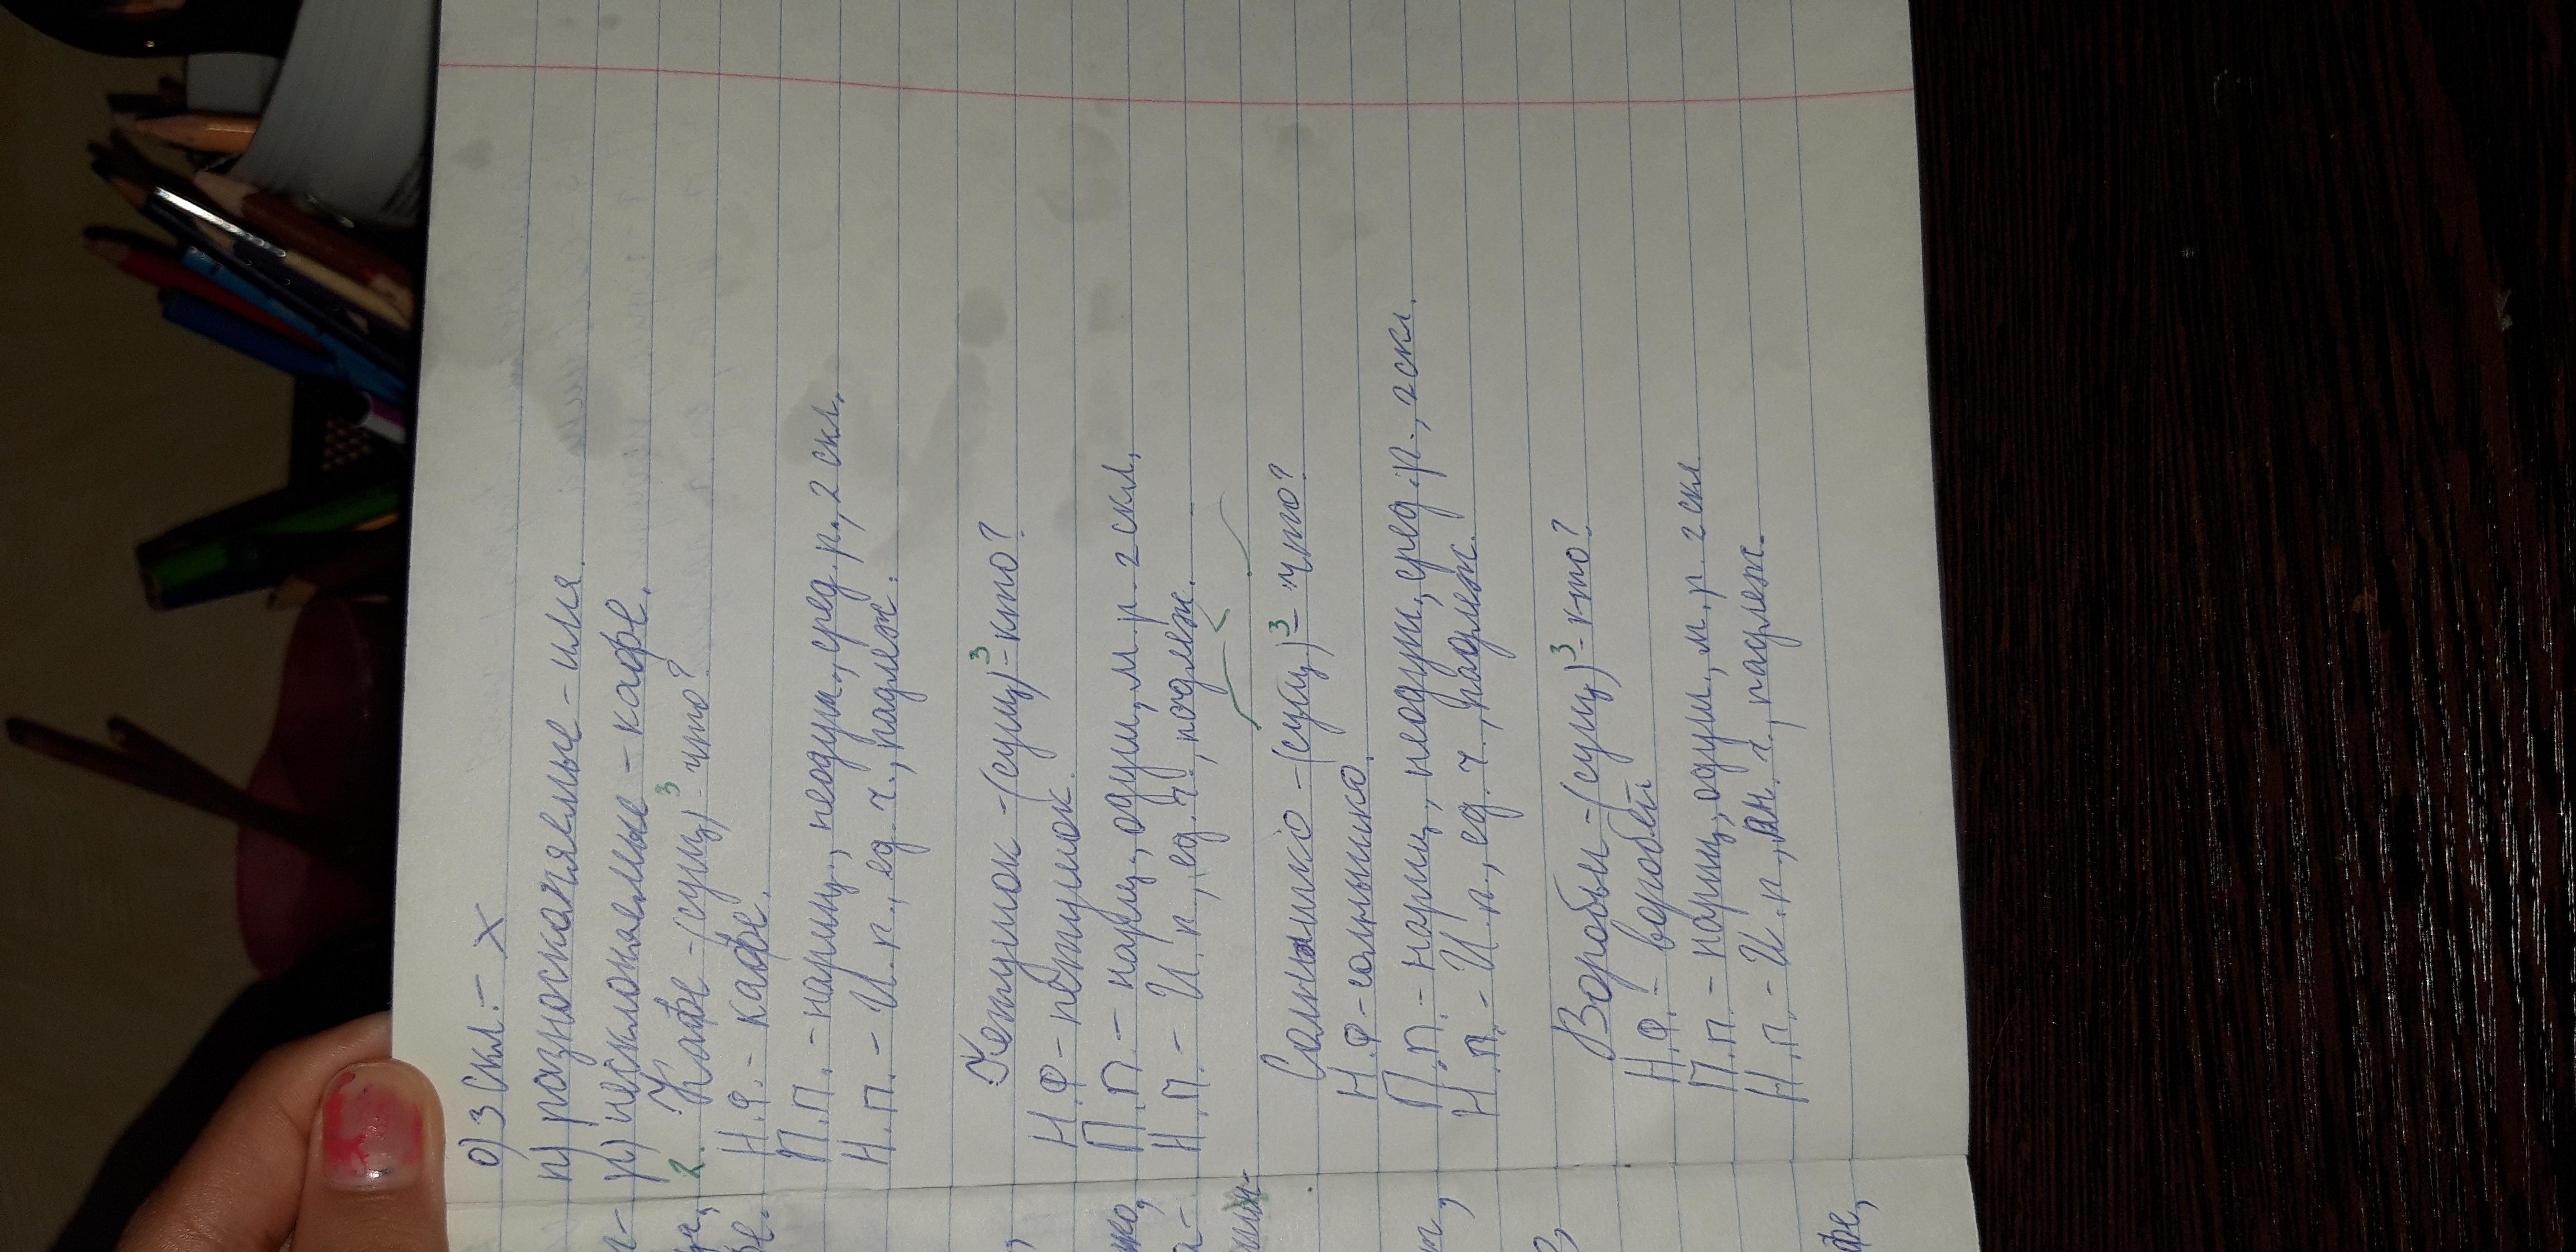 о) 3 скл. - х
п) разносканяемые - имя.
р) несклоняемые - кафе.
2. Кафе - (сущ)³ - что?
Н.Ф. - кафе.
П.П. - нариц., неодуш., сред. р., 2 скл.
Н.П. - И.п., ед. ч., подлеж.
Петушок - (сущ)³ - кто?
Н.Ф - петушок.
П.П. - нариц., одуш, м.р. 2 скл,
Н.П. - И.п., ед. ч., подлеж.
Солнышко - (сущ)³ - что?
Н.Ф - солнышко.
П.П. - нариц, неодуш, сред. р., 2 скл.
Н.П. - И.п., ед. ч., подлеж.
Воробьи - (сущ)³ - кто?
Н.Ф. - воробей.
П.П - нариц, одуш, м.р. 2 скл
Н.П. - И.п, мн. ч., подлеж.